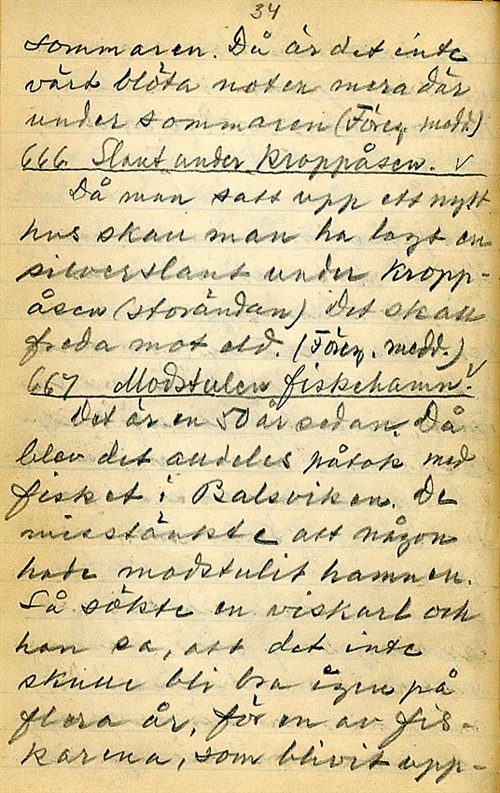 34
sommaren. Då är det inte
värt blöta noten mera där
under sommaren (Föreg. medd.)
666 Slant under kroppåsen. √
Då man satt upp ett nytt
hus skall man ha lagt en
silverslant under kropp-
åsen (storändan) Det skall
freda mot eld. (Föreg. medd.)
667 Modstulen fiskehamn. √
Det är en 50 år sedan. Då
blev det alldeles påtok med
fisket i Balsviken. De
misstänkte att någon
hade modstulit hamnen.
Så sökte en viskarl och
han sa, att det inte
skulle bli bra igen på
flera år, för en av fis-
karena, som blivit upp-